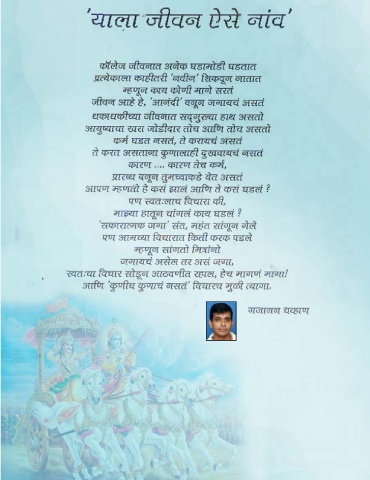 'याला जीवन ऐसे नांव'
कॉलेज जीवनात अनेक घडामोडी घडतात
प्रत्येकाला काहीतरी 'नवीन' शिकवून जातात
म्हणून काय कोणी मागे सरतं
जीवन आहे हे, 'आनंदी' बनून जगायचं असतं
धकाधकीच्या जीवनात सद्गुरुचा हाथ असतो
आयुष्याचा खरा जोडीदार तोच आणि तोच असतो
कर्म घडत नसतं, ते करायचं असतं
ते करत असताना कुणालाही दुखवायचं नसतं
कारण .... कारण तेच कर्म,
प्रारब्ध बनून तुमच्याकडे येत असतं
आपण म्हणतो हे कसं झालं आणि ते कसं घडलं ?
पण स्वतःलाच विचारा की,
माझ्या हातून चांगलं काय घडलं ?
'सकारात्मक जगा' संत, महंत सांगून गेले
पण आमच्या विचारात किती फरक पडले
म्हणून सांगतो मित्रांनो
जगायचं असेल तर असं जगा,
स्वतःचा विचार सोडून आठवणीत रहाल, हेच मागणं मागा!
आणि 'कुणीच कुणाचं नसतं' विचारच मुळी त्यागा.
गजानन चव्हाण